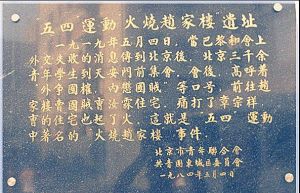 五四運動火燒趙家樓遺址
一九一九年五月四日，當巴黎和會上
外交失敗的消息傳到北京後，北京三千余
青年學生到天安門前集會。會後，高呼着
“外争國權，内懲國賊”等口号，前往趙
家樓賣國賊曹汝霖住宅，痛打了章宗祥
曹的住宅也起了火，這就是“五四”運動
中著名的“火燒趙家樓”事件。
北京市青年聯合會
共青團東城區委員會
一九八四年五月四日